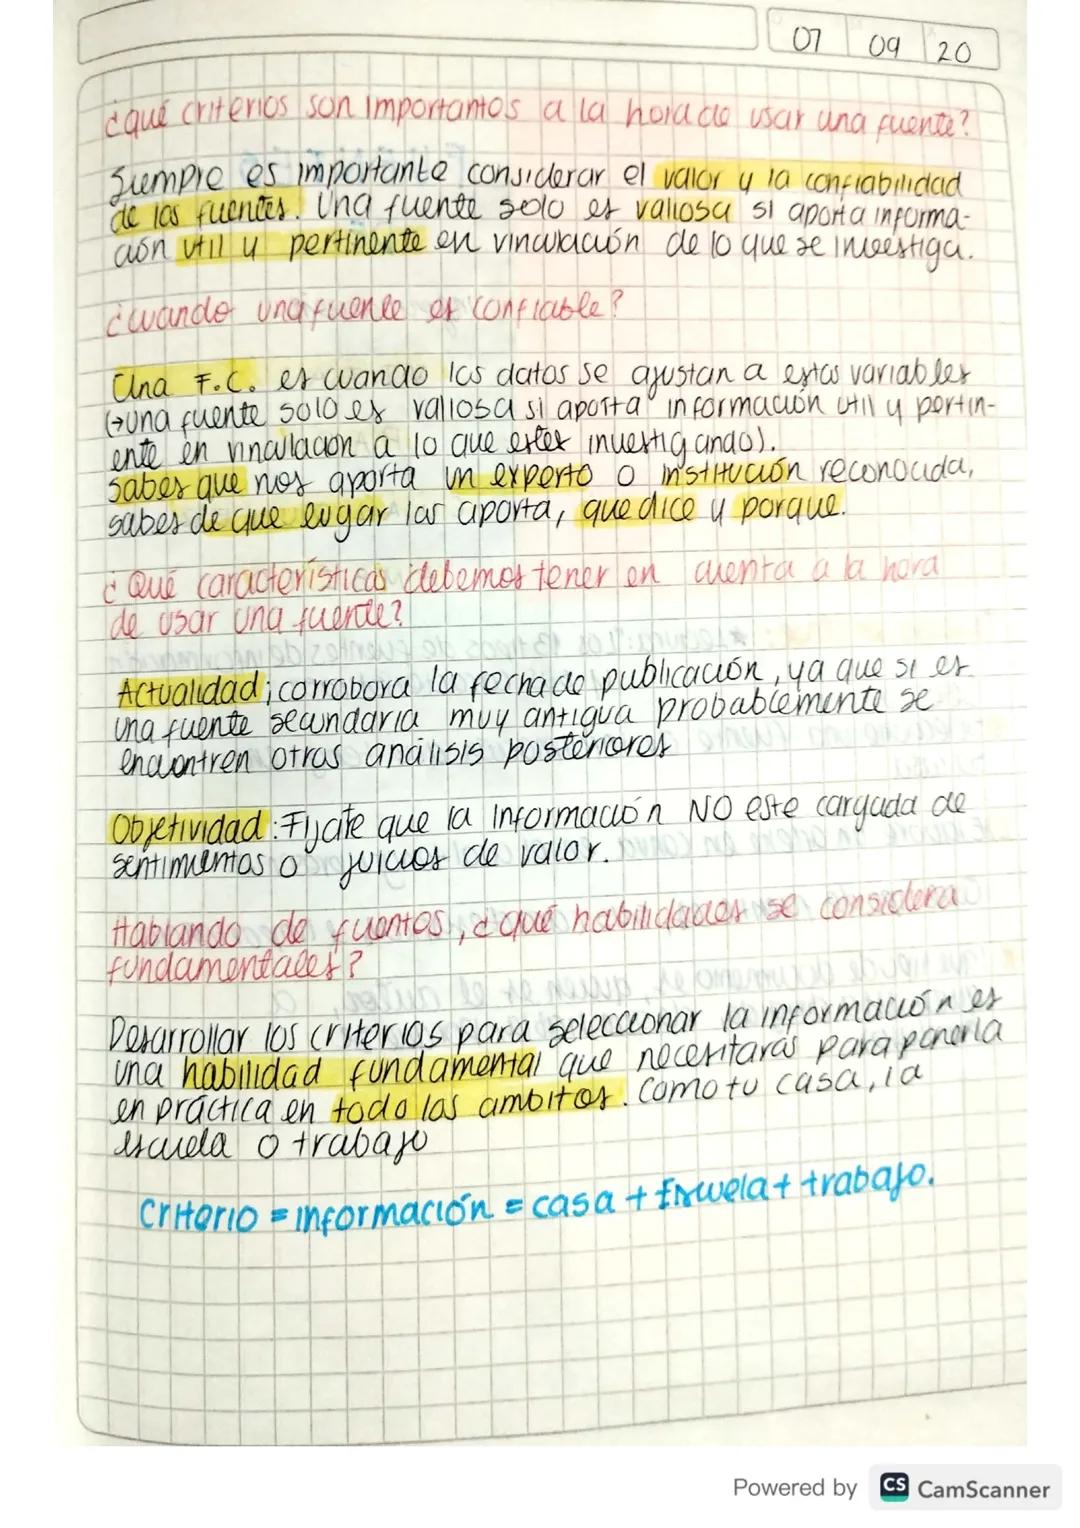 07 09 20
¿qué criterios son importantes a la hora de usar una fuente?
Siempre es importante considerar el valor y la confiabilidad
de las fuentes. Una fuente solo es valiosa si aporta informa-
ción util y pertinente en vinculación de lo que se investiga.
¿cuando una fuente es confiable?
Una F.C. es cuando los datos se ajustan a estas variables
(→una fuente solo es valiosa si aporta información util y pertin-
ente en vinculacion a lo que estes investigando).
sabes que nos aporta un experto o institución reconocida,
sabes de que lugar las aporta, que dice y porque.
¿Qué características debemos tener en cuenta a la hora
de usar una fuente?
Actualidad; corrobora la fecha de publicación, ya que si es
una fuente secundaria muy antigua probablemente se
encuentren otros análisis posteriores
Objetividad: Fijate que la información NO este cargada de
sentimientos o juicios de valor.
Hablando de fuentes, ¿qué habilidades se considera
fundamentales?
Desarrollar los criterios para seleccionar la información es
una habilidad fundamental que necesitarás para ponerla
en práctica en todo los ambitos. Como tu casa, la
escuela o trabajo
Criterio = información = casa + Escuela + trabajo.
Powered by CS CamScanner